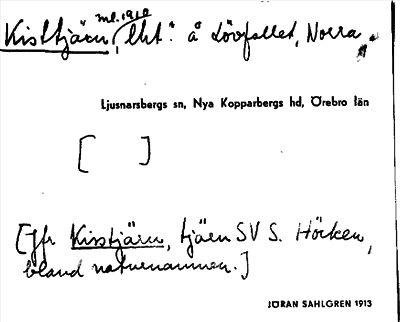 ml. 1910
Kisttjärn, lht. å Lövfallet, Norra,
Ljusnarsbergs sn, Nya Kopparbergs hd, Örebro län
[ ]
[Jfr Kisstjärn, tjärn SV S. Hörken,
bland naturnamnen.]
JÖRAN SAHLGREN 1913